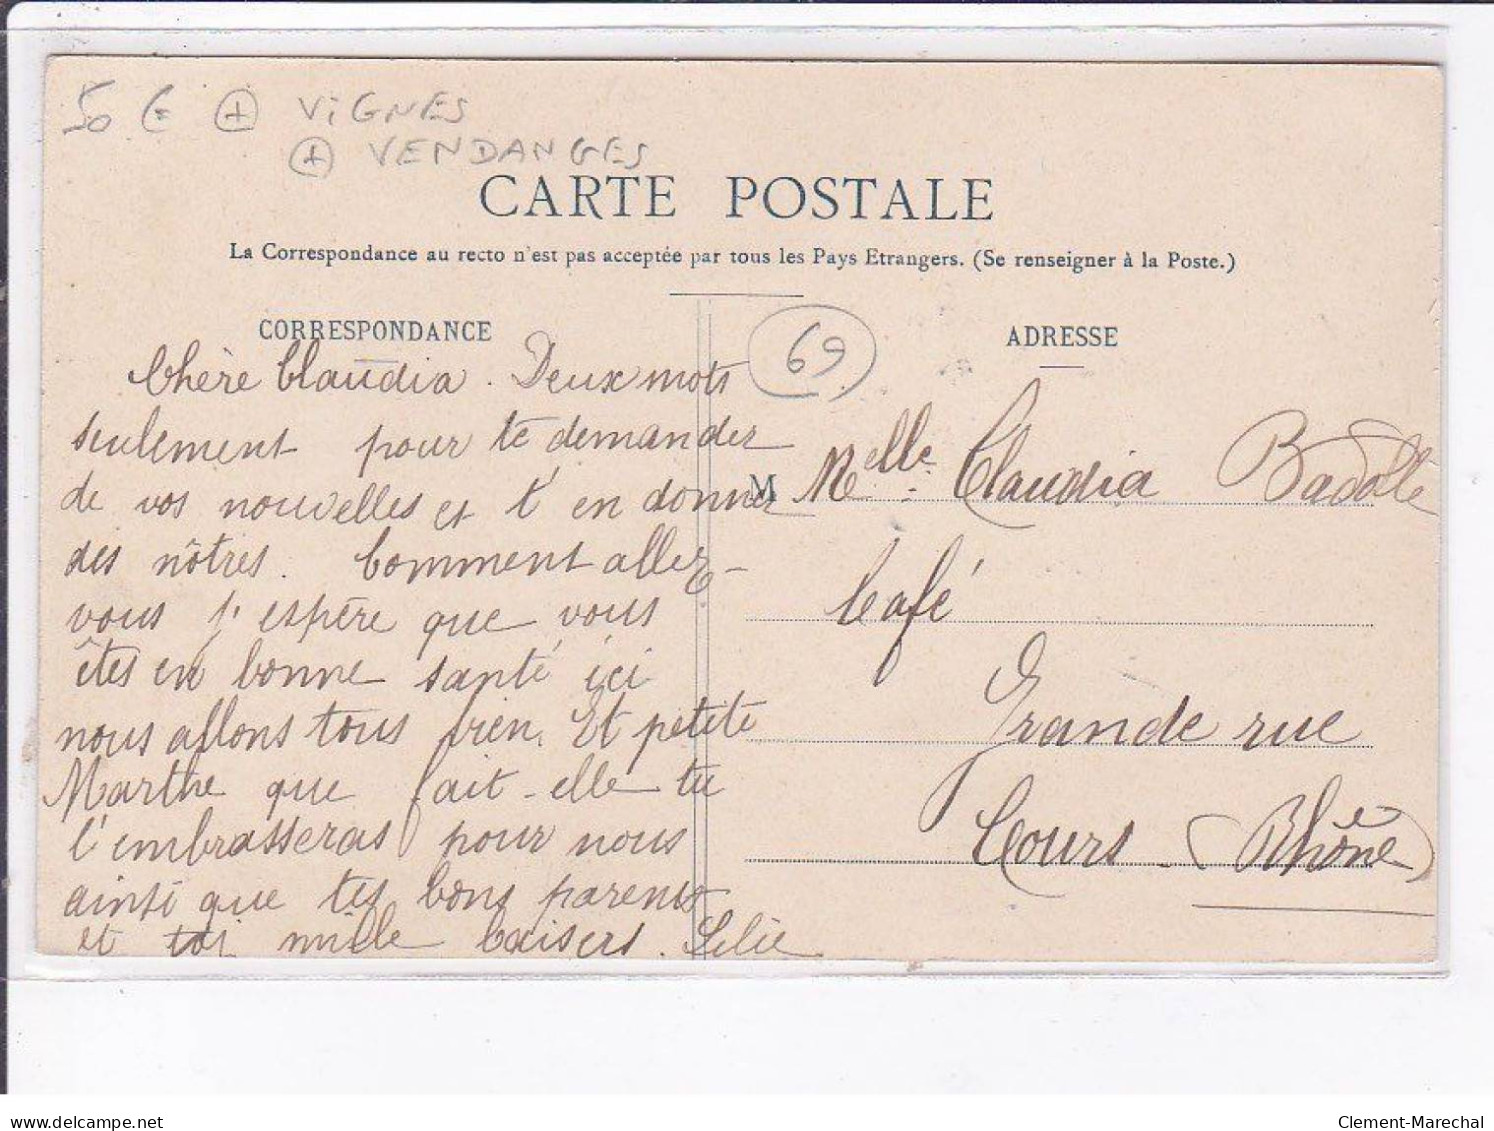 50 € + VIGNES
+ VENDANGES
CARTE POSTALE
La Correspondance au recto n'est pas acceptée par tous les Pays Etrangers. (Se renseigner à la Poste.)
CORRESPONDANCE
Chère Claudia. Deux mots
seulement pour te demander
de vos nouvelles et t'en donner
des nôtres. Comment allez-
vous j'espère que vous
êtes en bonne santé ici
nous allons tous bien. Et petite
Marthe que fait-elle tu
l'embrasseras pour nous
ainsi que tes bons parents
et toi mille baisers. Lélie
69
ADRESSE
M Melle Claudia Badolle
Café
Grande rue
Cours (Rhône)
delcampe.net
Clement-Marechal